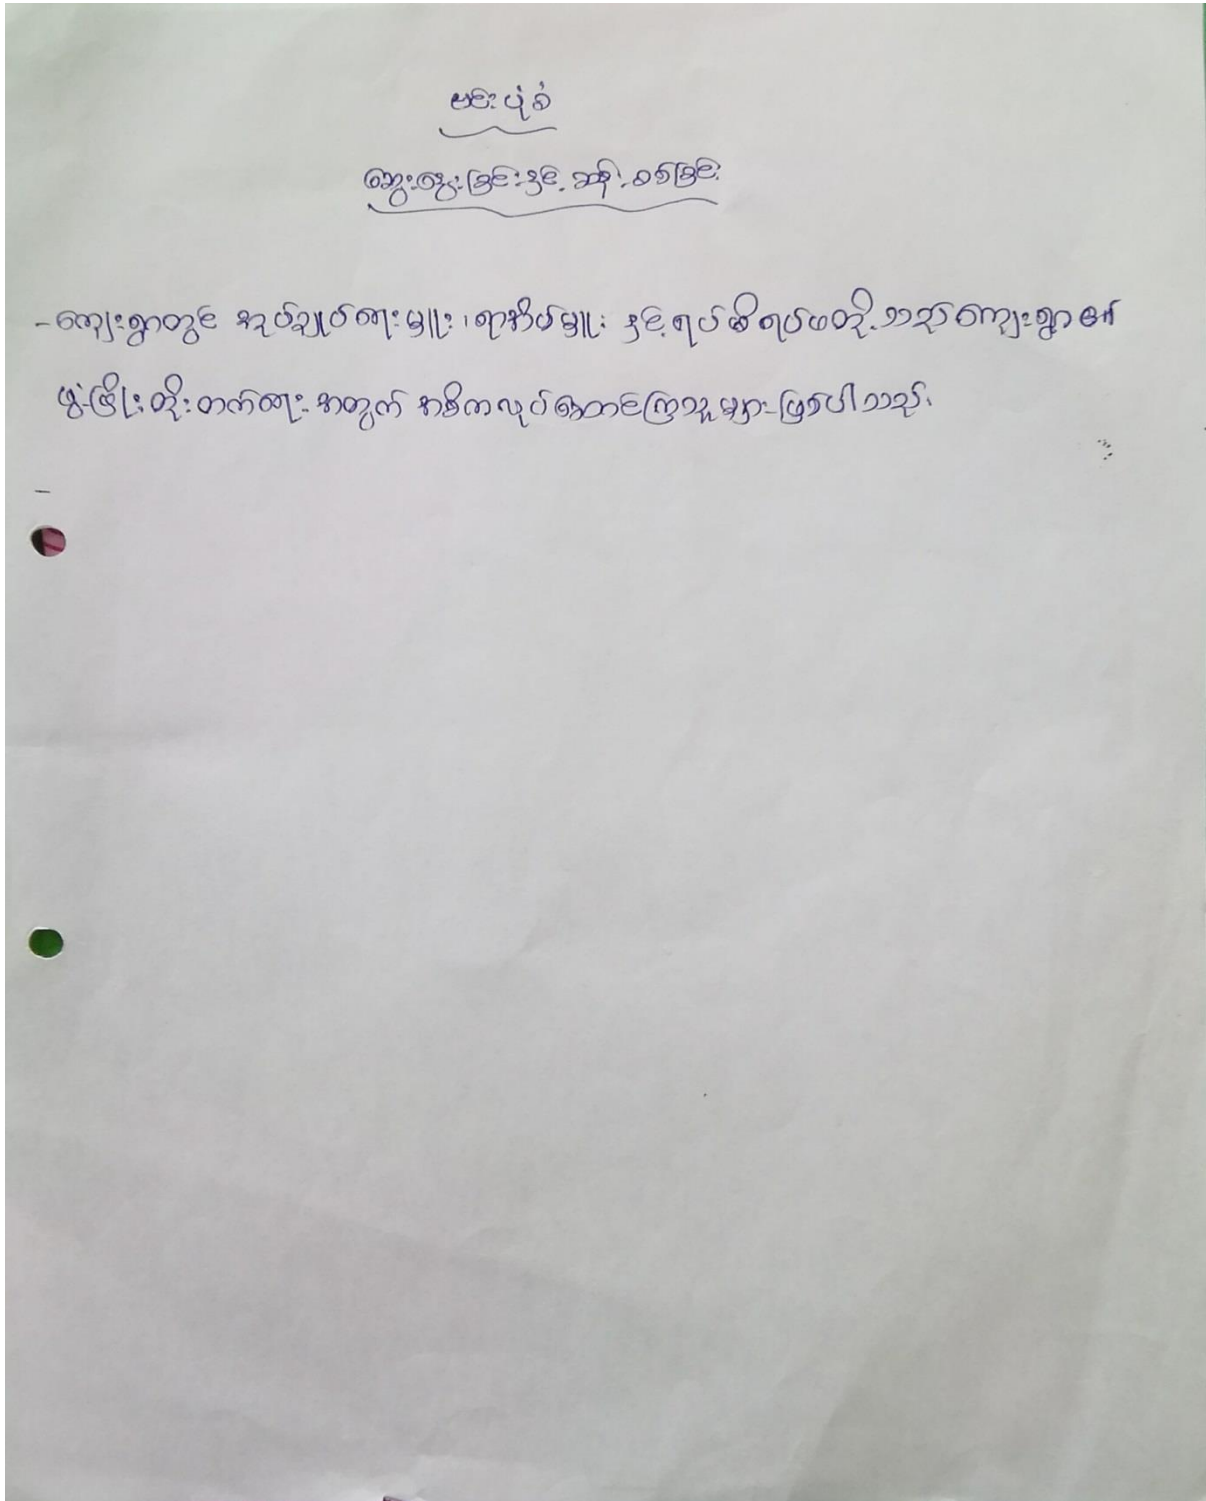 မင်းပုံစံ
ဆွေးနွေးခြင်းနှင့် ဆန်းစစ်ခြင်း
- ကျေးရွာတွင် အုပ်ချုပ်ရေးမှူး၊ ရာအိမ်မှူး နှင့် ရပ်မိရပ်ဖတို့သည် ကျေးရွာ၏
ဖွံ့ဖြိုးတိုးတက်ရေးအတွက် အဓိကလုပ်ဆောင်ကြသူများ ဖြစ်ပါသည်။
-